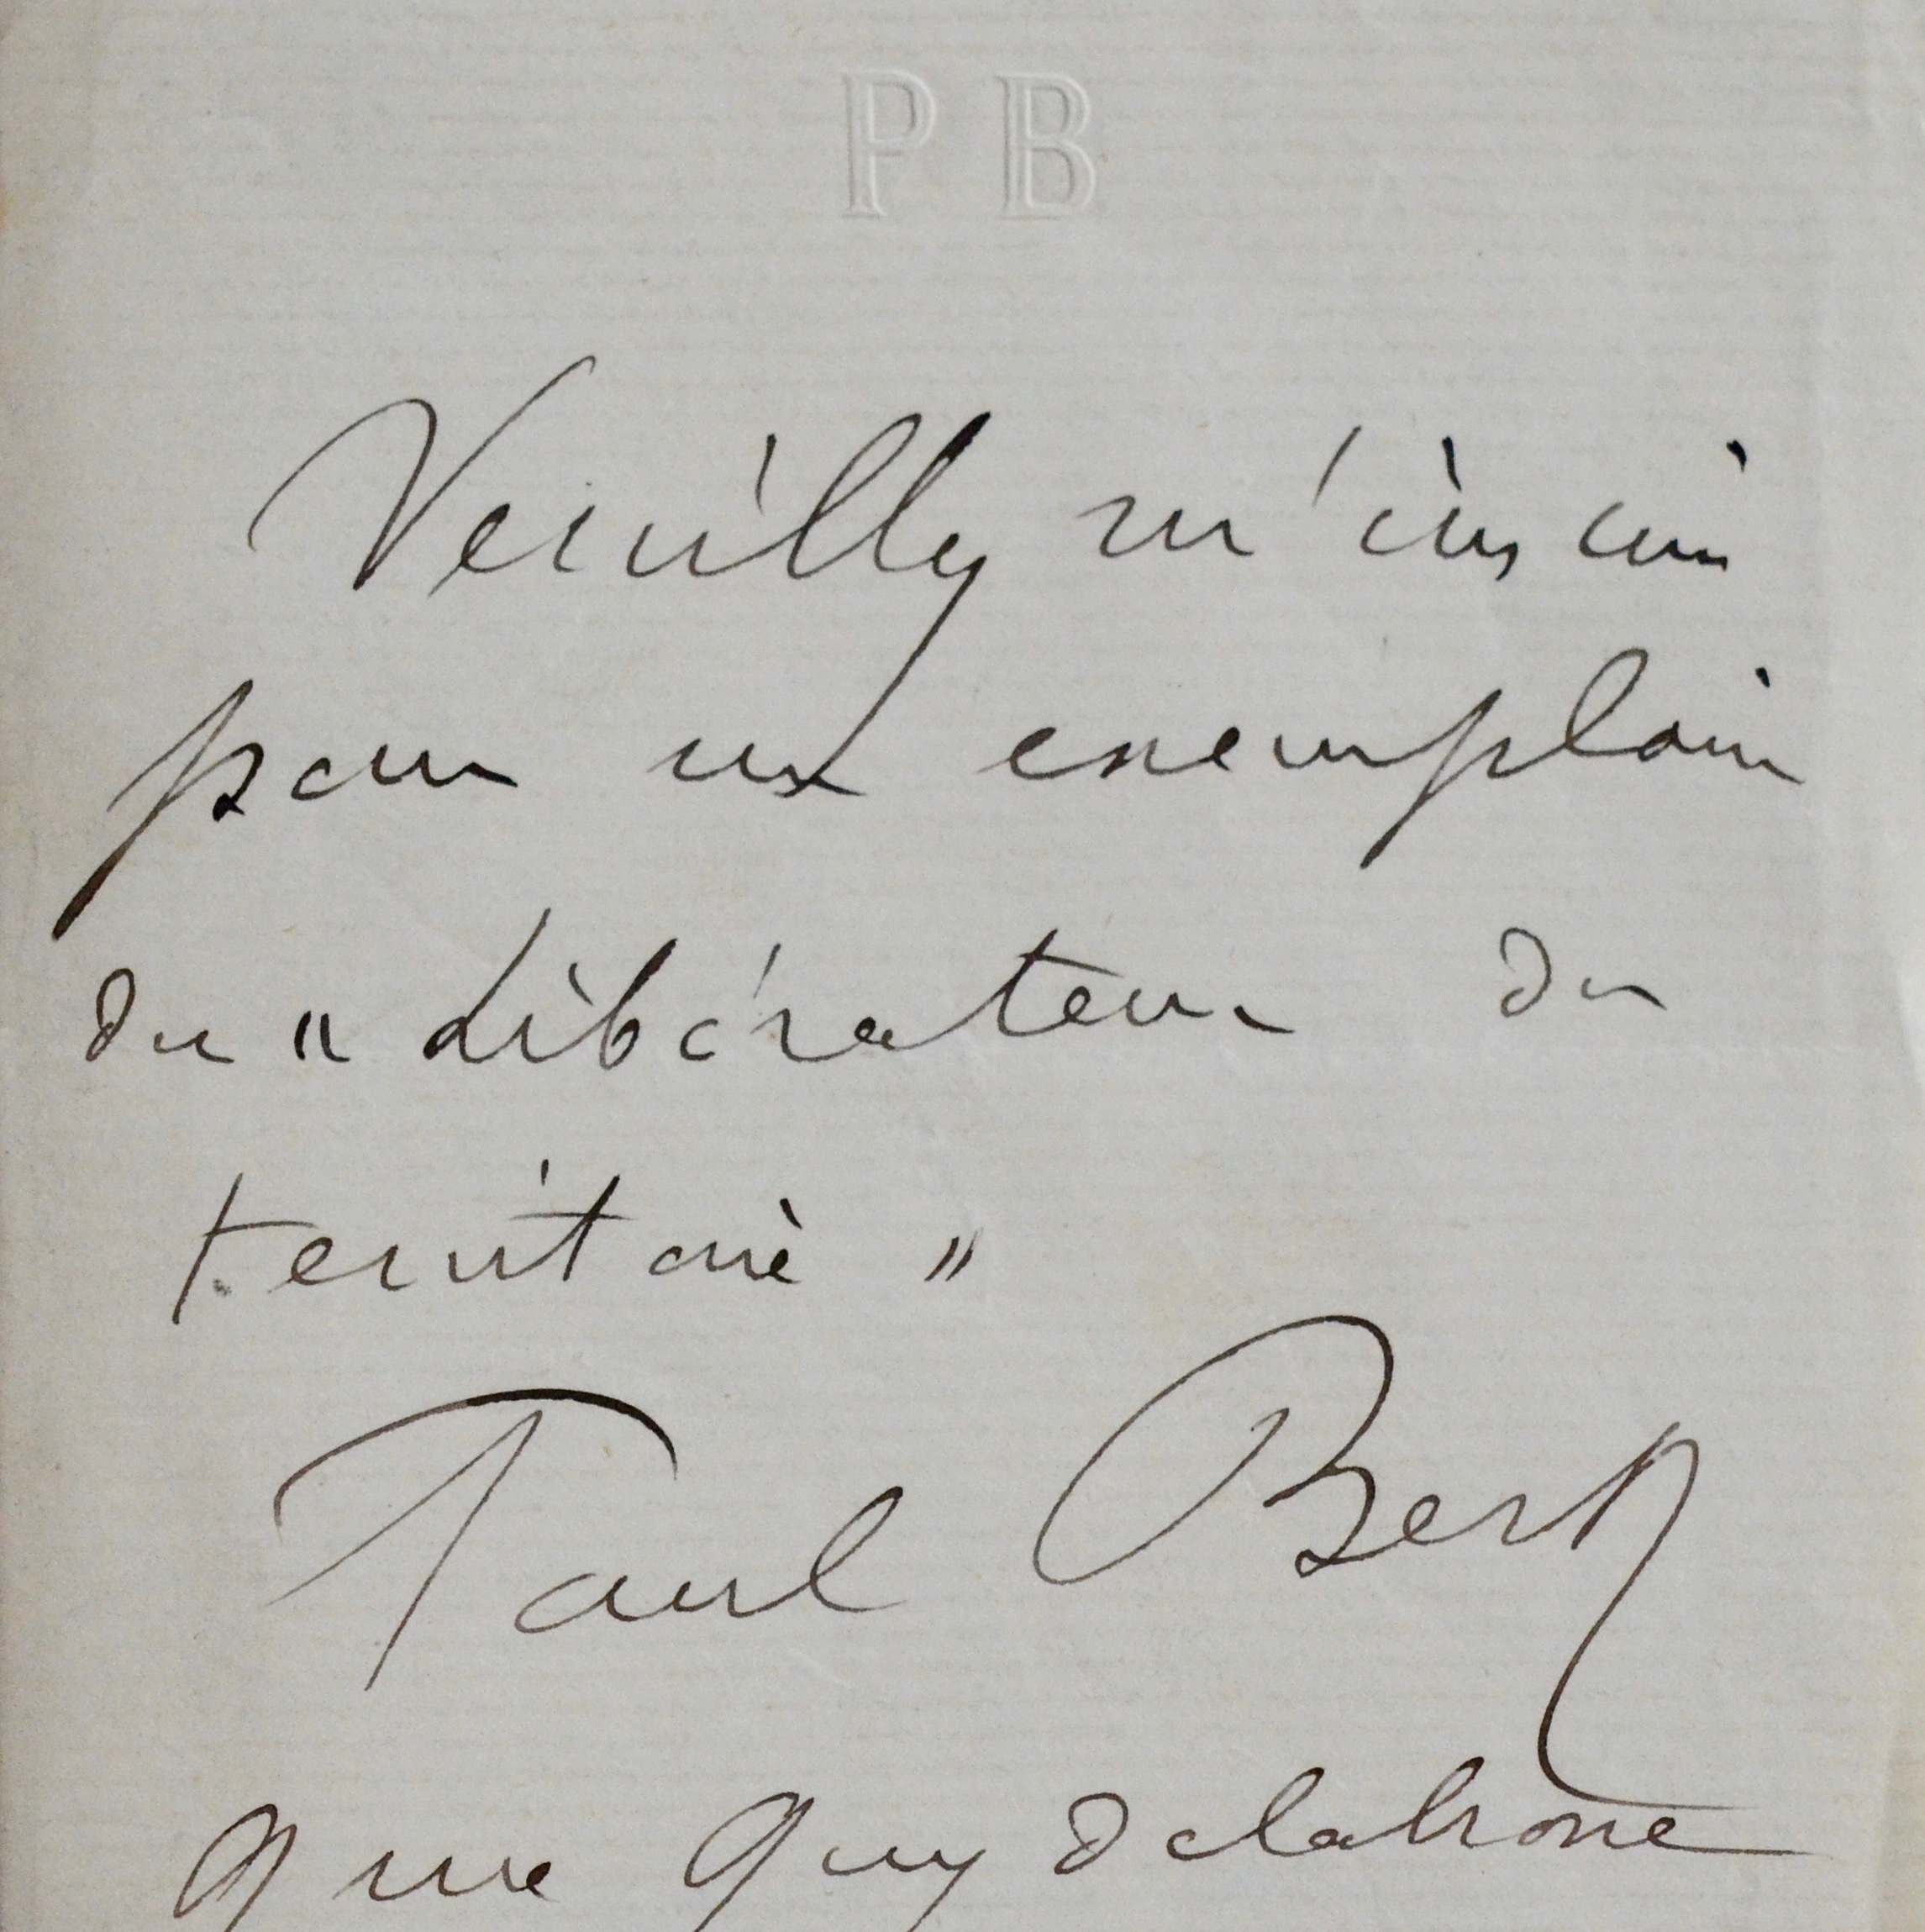 P B
Veuillez m'inscrire
pour un exemplaire
du " Libérateur du
territoire "
Paul Bert
9 rue Guy Delabrosse